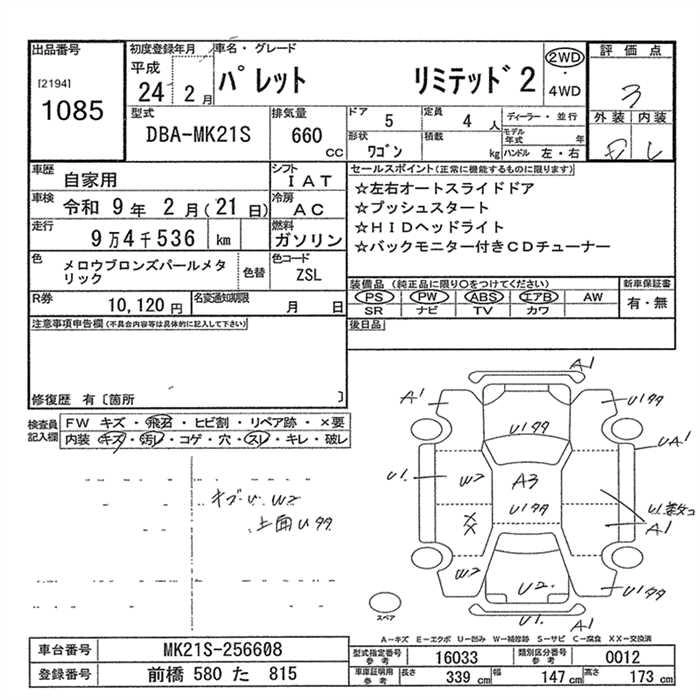 出品番号
[2194]
1085
初度登録年月
平成
24 2月
車名・グレード
パレット リミテッド2
2WD
・
4WD
評価点
3
外装 内装
型式
DBA-MK21S
排気量
660
CC
ドア 5
定員 4 人
形状 ワゴン
積載 kg
ディーラー・並行
モデル年式 年
ハンドル 左・右
車歴
自家用
シフト
IAT
車検 令和 9年 2月(21日)
冷房
AC
走行
9万4千536 km
燃料
ガソリン
色
メロウブロンズパールメタリック
色替
色コード
ZSL
R券 10,120円
名変通知期限 月 日
セールスポイント(正常に機能するものに限ります)
☆左右オートスライドドア
☆プッシュスタート
☆HIDヘッドライト
☆バックモニター付きCDチューナー
装備品(純正品に限り○をつけてください)
PS PW ABS エアB AW
SR ナビ TV カワ
新車保証書
有・無
後日品
注意事項申告欄(不具合内容等は具体的に記入して下さい)
修復歴 有〔箇所 〕
検査員記入欄
FW キズ・飛石・ヒビ割・リペア跡・×要
内装 キズ・汚レ・コゲ・穴・スレ・キレ・破レ
W2
上面U99
A1
A1
U199
U199
UA1
U1.
W2
A3
U199
XX
U1.
A1
W2
U2.
U199
A1
スペア
A-キズ E-エクボ U-凹み W-補修跡 S-サビ C-腐食 XX-交換済
車台番号 MK21S-256608
登録番号 前橋 580 た 815
型式指定番号参考 16033
類別区分番号参考 0012
車庫証明用参考 長さ 339 cm 幅 147 cm 高さ 173 cm